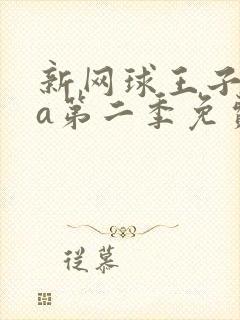 新网球王子
a第二季免费
从慕